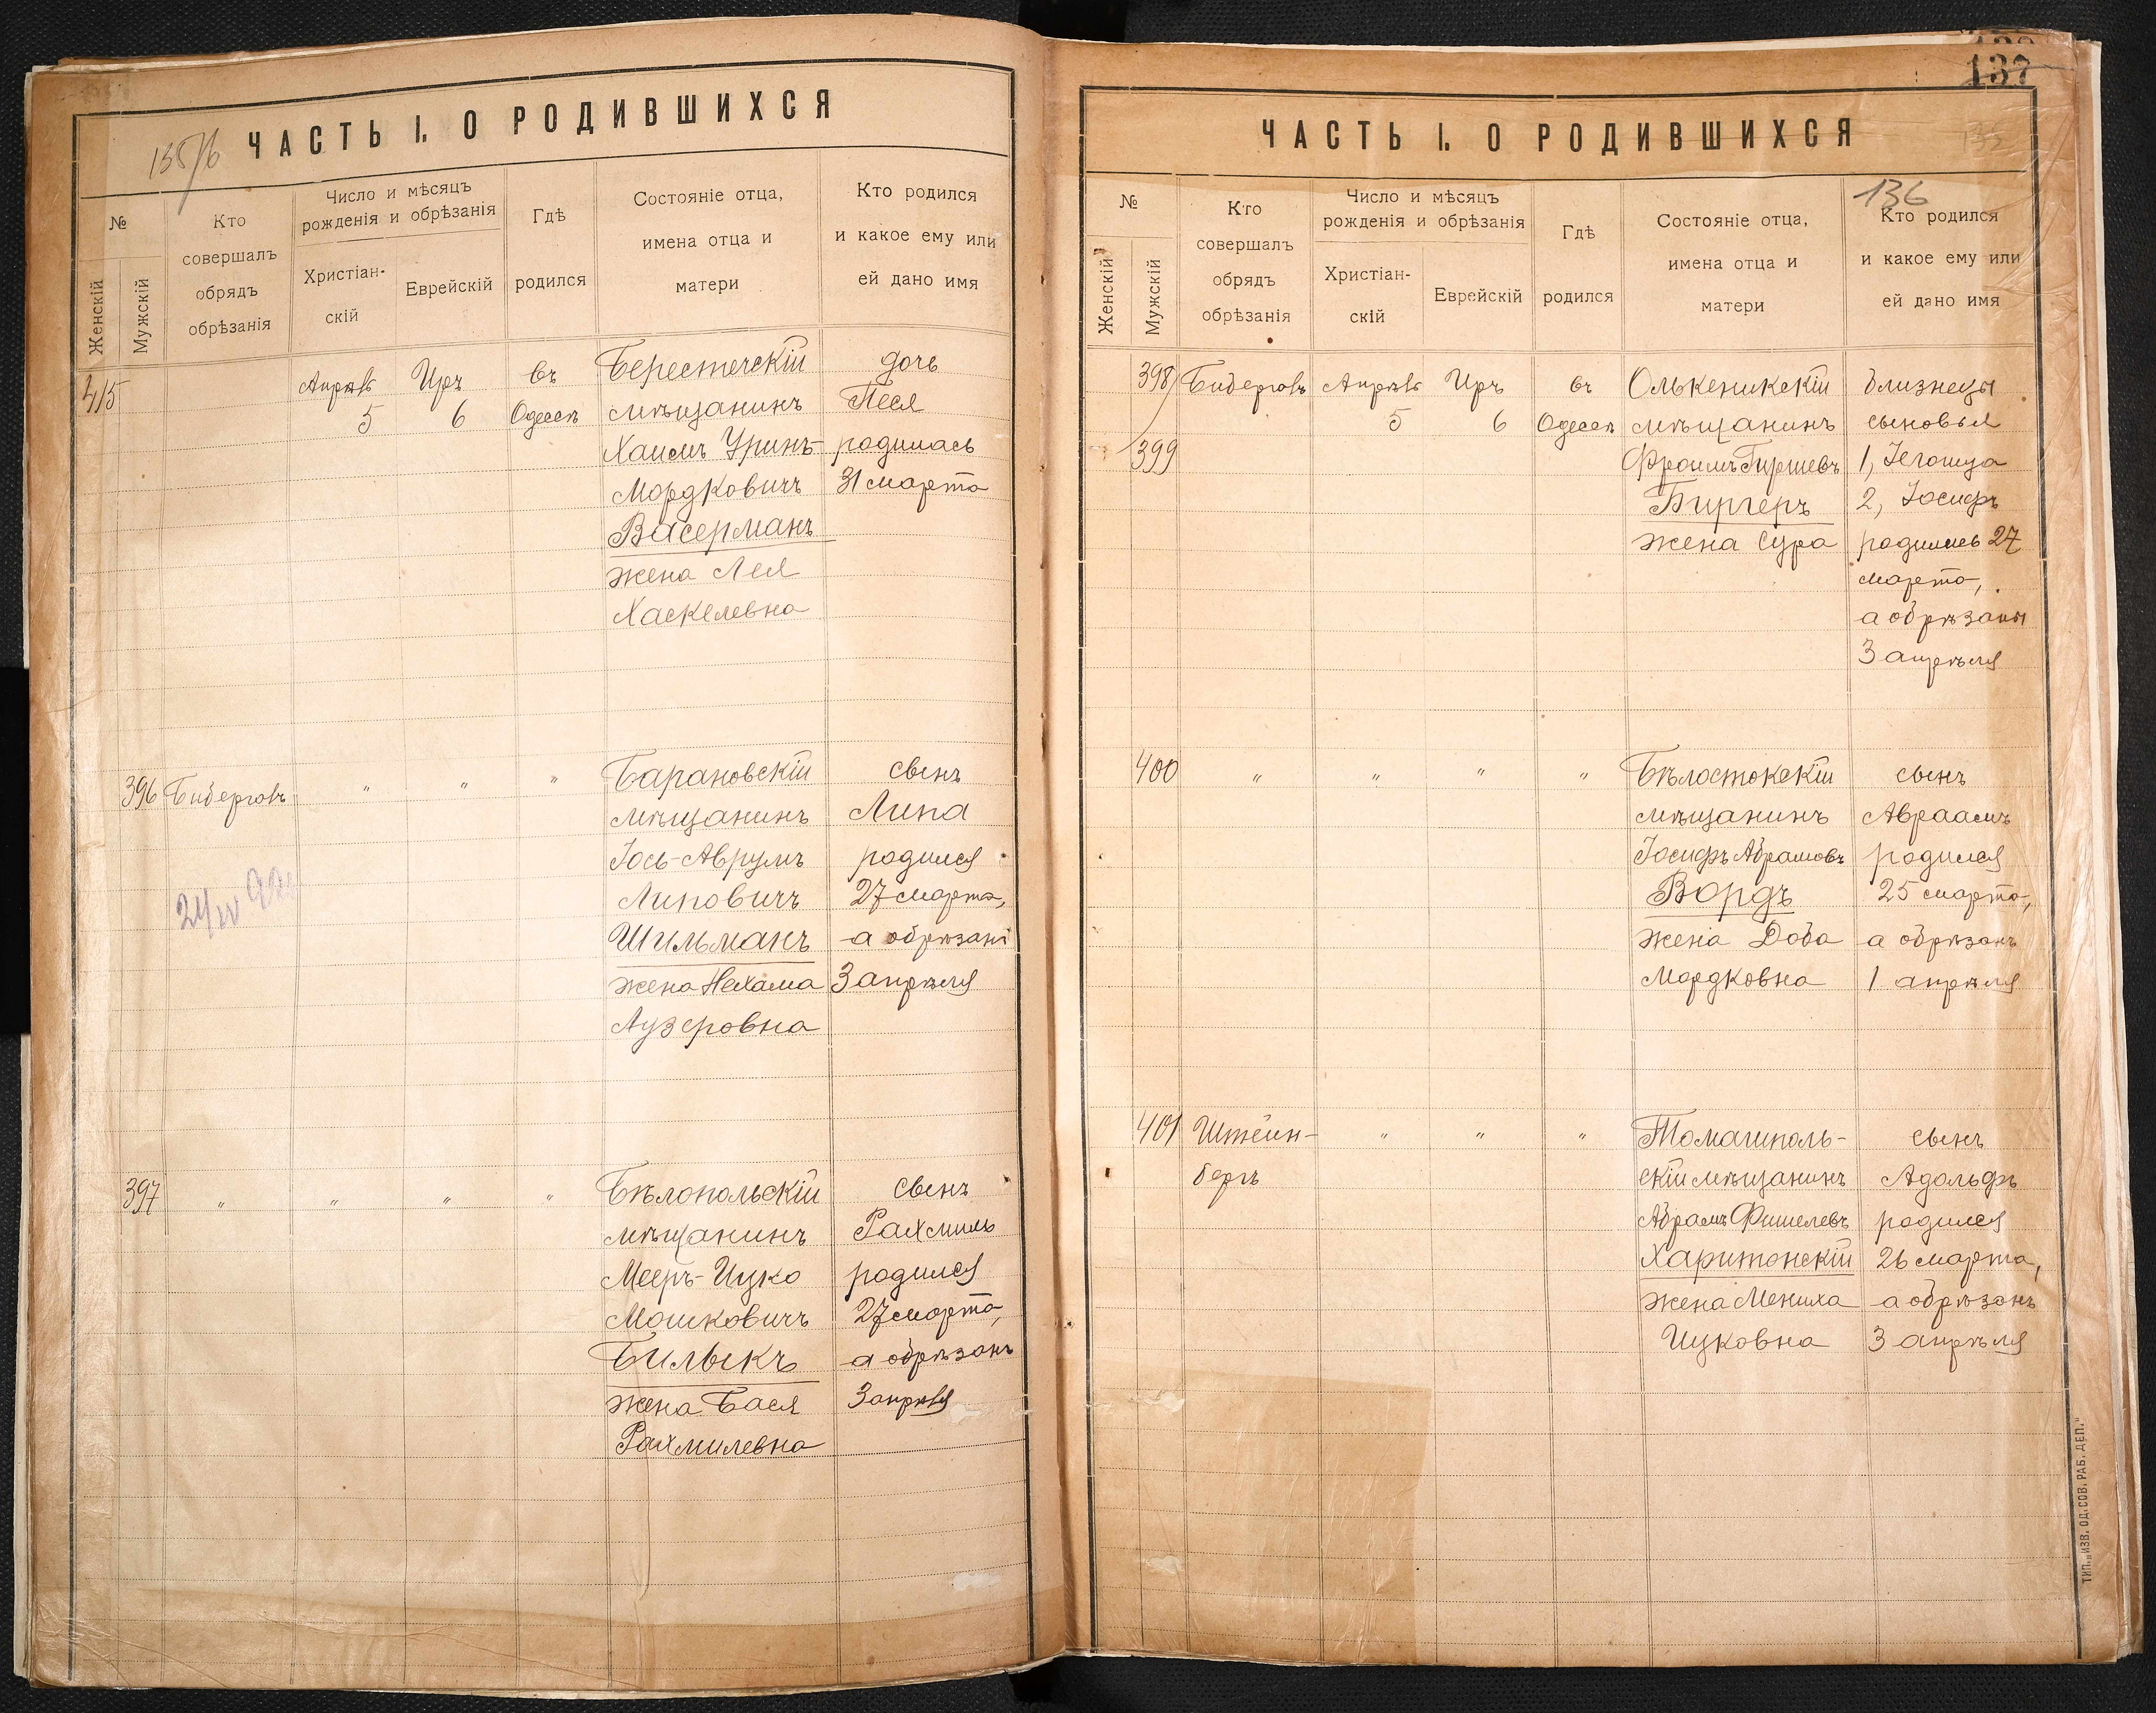 ЧАСТЬ I. О РОДИВШИХСЯ
135/б
№
Женскій
Мужскій
Кто
совершалъ
обрядъ
обрѣзанія
Число и мѣсяцъ
рожденія и обрѣзанія
Христіан-
скій
Еврейскій
Гдѣ
родился
Состояніе отца,
имена отца и
матери
Кто родился
и какое ему или
ей дано имя
415
Апрѣль
5
Иръ
6
въ
Одессѣ
Берестечскій
мѣщанинъ
Хаимъ Уринъ-
Мордковичъ
Васерманъ
жена Лея
Хаскелевна
дочь
Песя
родилась
31 марта
396 Биберговъ " " "
Барановскій
мѣщанинъ
Іось-Аврумъ
Липовичъ
Шильманъ
жена Нехама
Лузеровна
сынъ
Липа
родился
27 марта,
а обрѣзанъ
3 апрѣля
397 " " " "
Бѣлопольскій
мѣщанинъ
Мееръ-Ицко
Мошковичъ
Билыкъ
жена Бася
Рахмилевна
сынъ
Рахмиль
родился
27 марта,
а обрѣзанъ
3 апрѣля
137
ЧАСТЬ I. О РОДИВШИХСЯ
135
136
№
Женскій
Мужскій
Кто
совершалъ
обрядъ
обрѣзанія
Число и мѣсяцъ
рожденія и обрѣзанія
Христіан-
скій
Еврейскій
Гдѣ
родился
Состояніе отца,
имена отца и
матери
Кто родился
и какое ему или
ей дано имя
398/
399
Биберговъ
Апрѣль
5
Иръ
6
въ
Одессѣ
Олькеникскій
мѣщанинъ
Фроимъ Гиршевъ
Биргеръ
жена Сура
близнецы
сыновья
1, Іегошуа
2, Іосифъ
родились 27
марта,
а обрѣзаны
3 апрѣля
400 " " " "
Бѣлостокскій
мѣщанинъ
Іосифъ Абрамовъ
Вордъ
жена Доба
Мордковна
сынъ
Авраамъ
родился
25 марта,
а обрѣзанъ
1 апрѣля
401 Штейн-
бергъ
" " "
Томашполь-
скій мѣщанинъ
Абрамъ Фишелевъ
Харитонскій
жена Мениха
Ицковна
сынъ
Адольфъ
родился
26 марта,
а обрѣзанъ
3 апрѣля
ТИП. „ИЗВ. ОД. СОВ. РАБ. ДЕП."